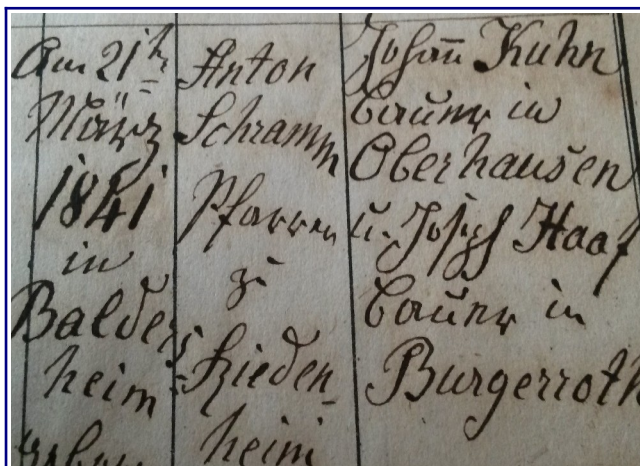 Am 21t
März
1841
in
Balders
heim
Anton
Schramm
Pfarrer
zu
Rieden-
heim
Johan̄ Kuhn
bauer in
Oberhausen
u. Joseph Haaf
bauer in
Burgerroth